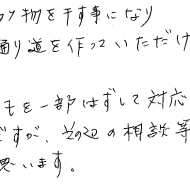 物を干す事になり
通り道を作っていただけ
を一部はずして対応
ですが、その辺の相談等
思います。